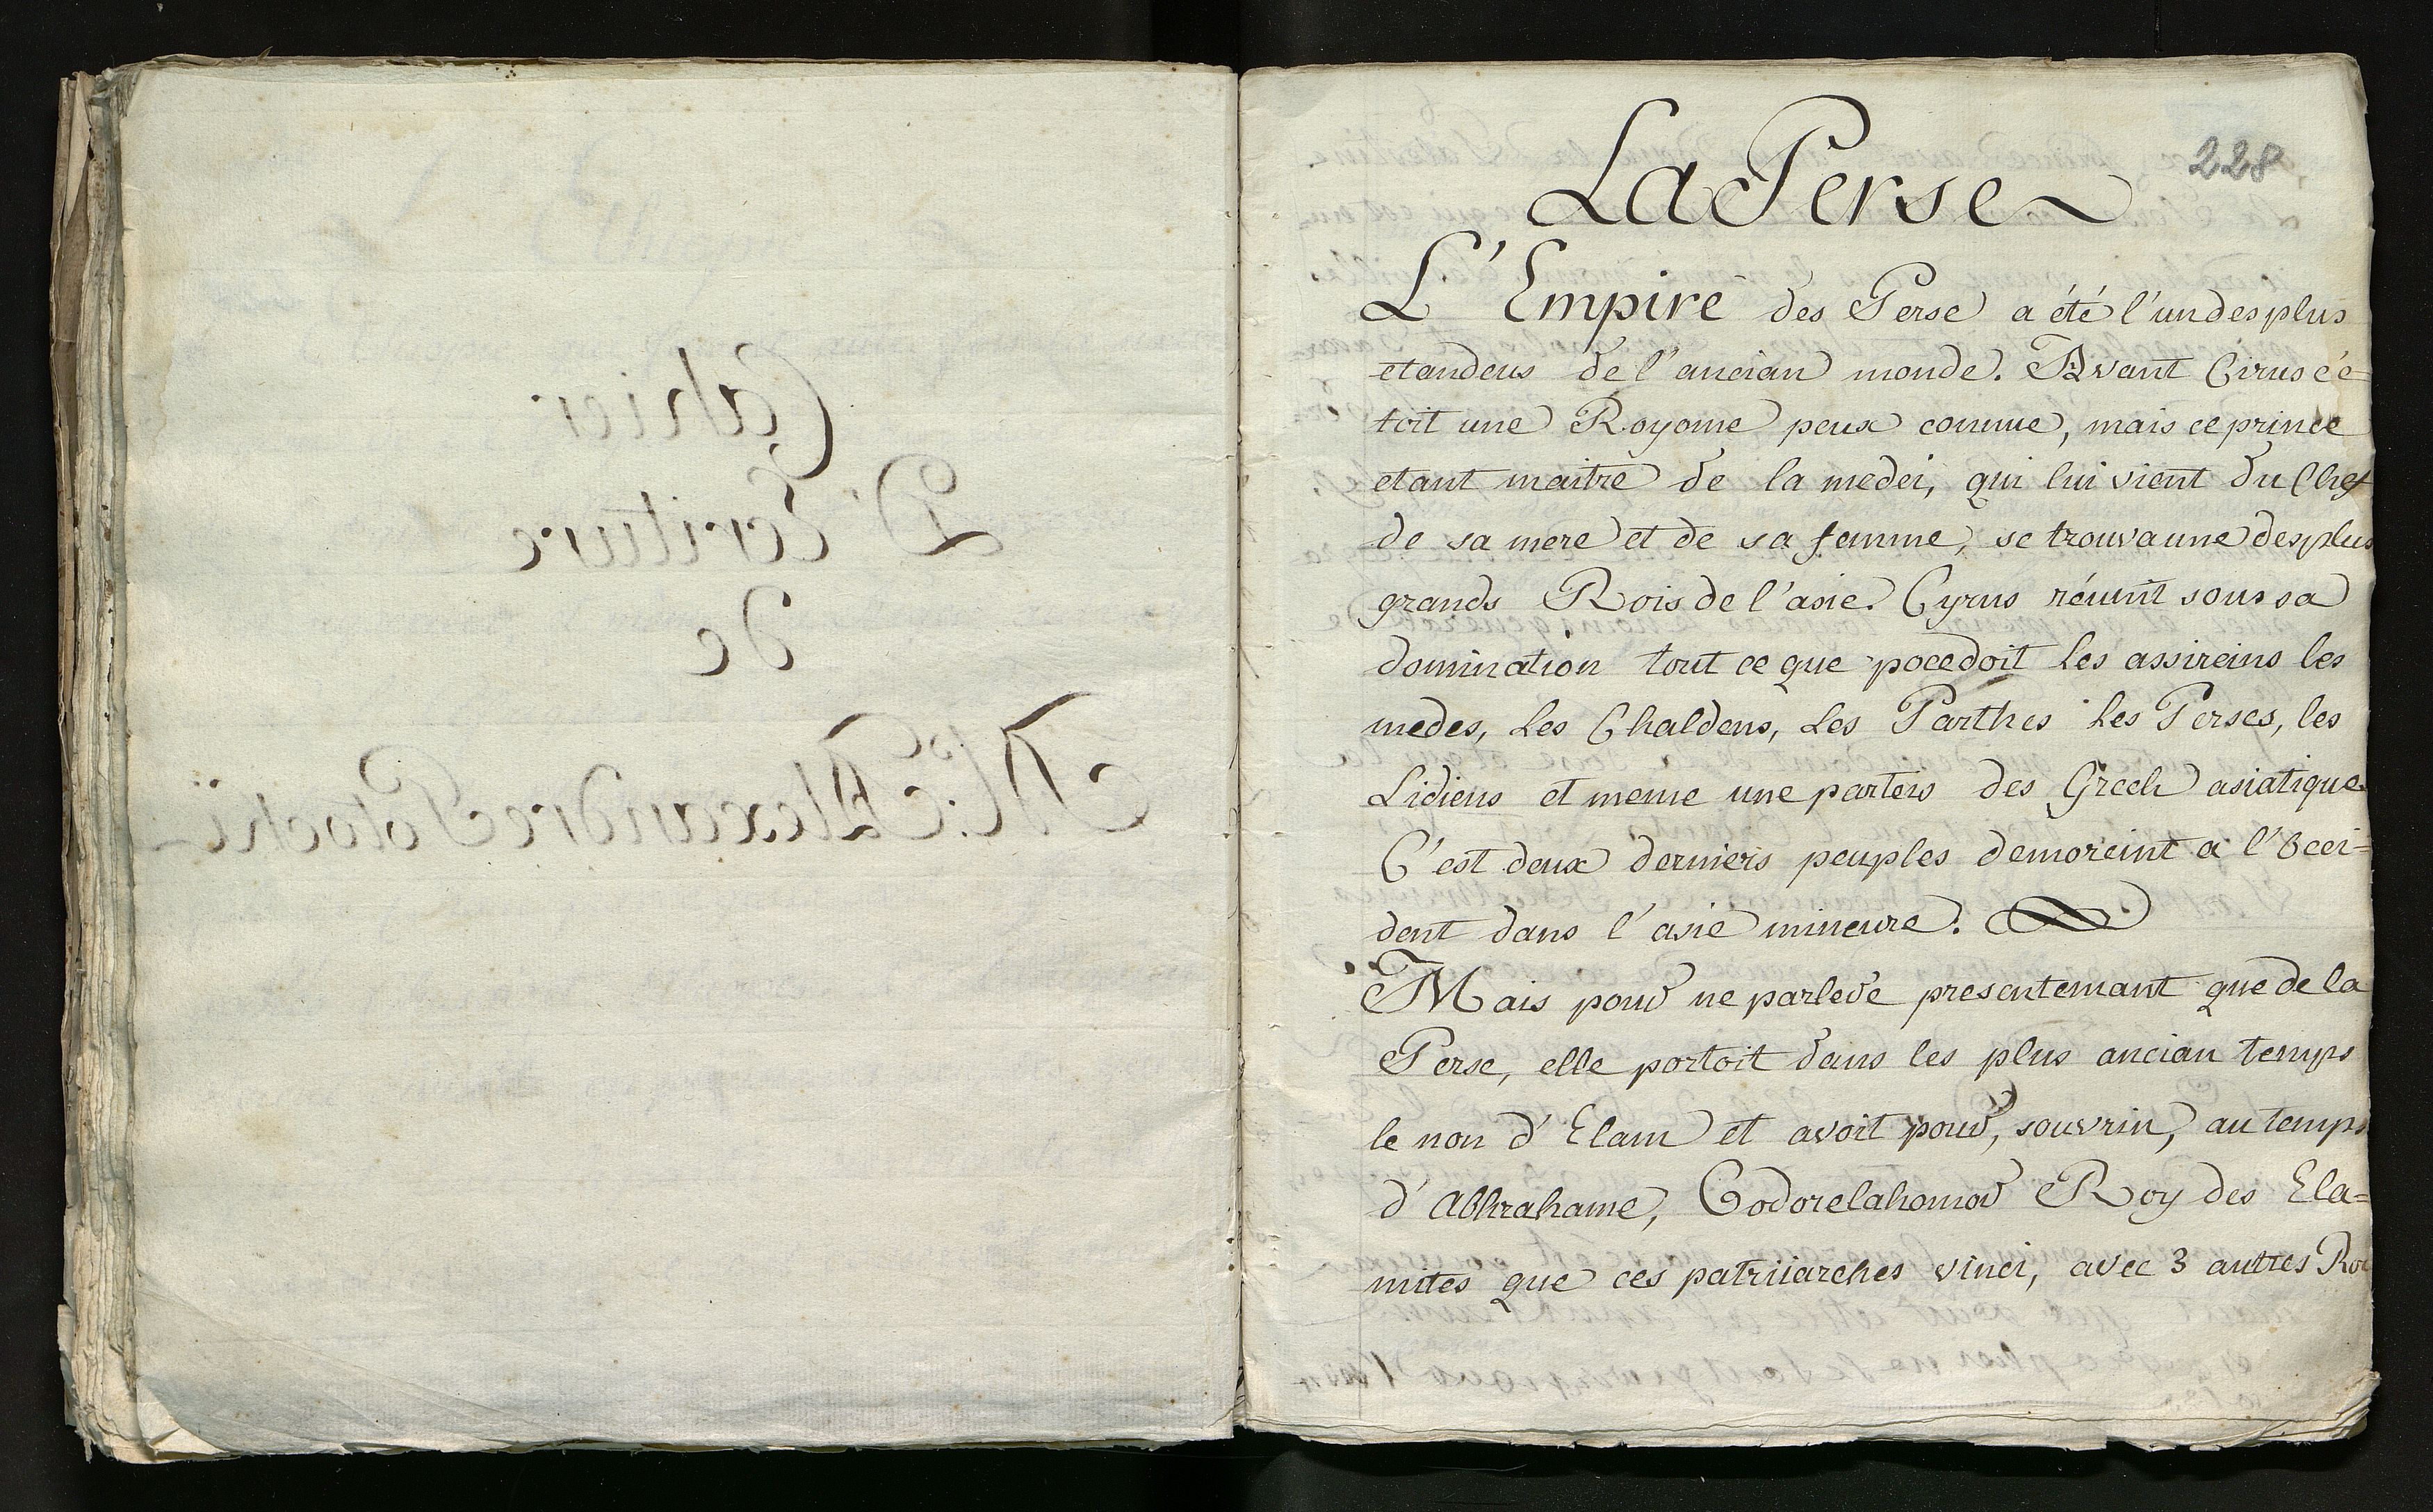 Cahier
D'Ecriture
de
Alexandre Potocki
228
La Perse
L'Empire des Perse a été l'un des plus
etandeus de l'ancian monde. Avant Cirus cé=
toit une Royome peux connue, mais ce prince
etant maitre de la medei, qui lui vient du Chef
de sa mere et de sa femme, se trouva une des plus
grands Rois de l'asie. Cyrus réunit sous sa
domination tout ce que pocedoit les assireins les
medes, les Chaldens, les Parthes les Perses, les
Lidiens et meme une parteis des Grech asiatique
C'est deux derniers peuples demoreint a l'Occi=
dent dans l'asie mineure.
Mais pour ne parlere presentemant que de la
Perse, elle portoit dans les plus ancian temps
le non d'Elam et avoit pour, souvrin, au temps
d'Abhrahame, Codorelahomor Roy des Ela=
mites que ces patriiarches vinci, avec 3 autres Roi